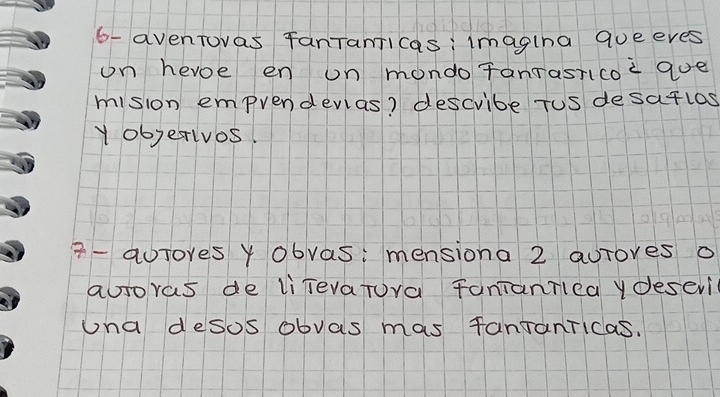 6- aventuras fantanticas: imagina que eres
un heroe en un mundo fantastico ¿ que
mision emprenderias? describe tus desafios
y objetivos.
7- autores y obras: mensiona 2 autores o
autoras de literatura fantantica y describ
una desus obras mas fantanticas.